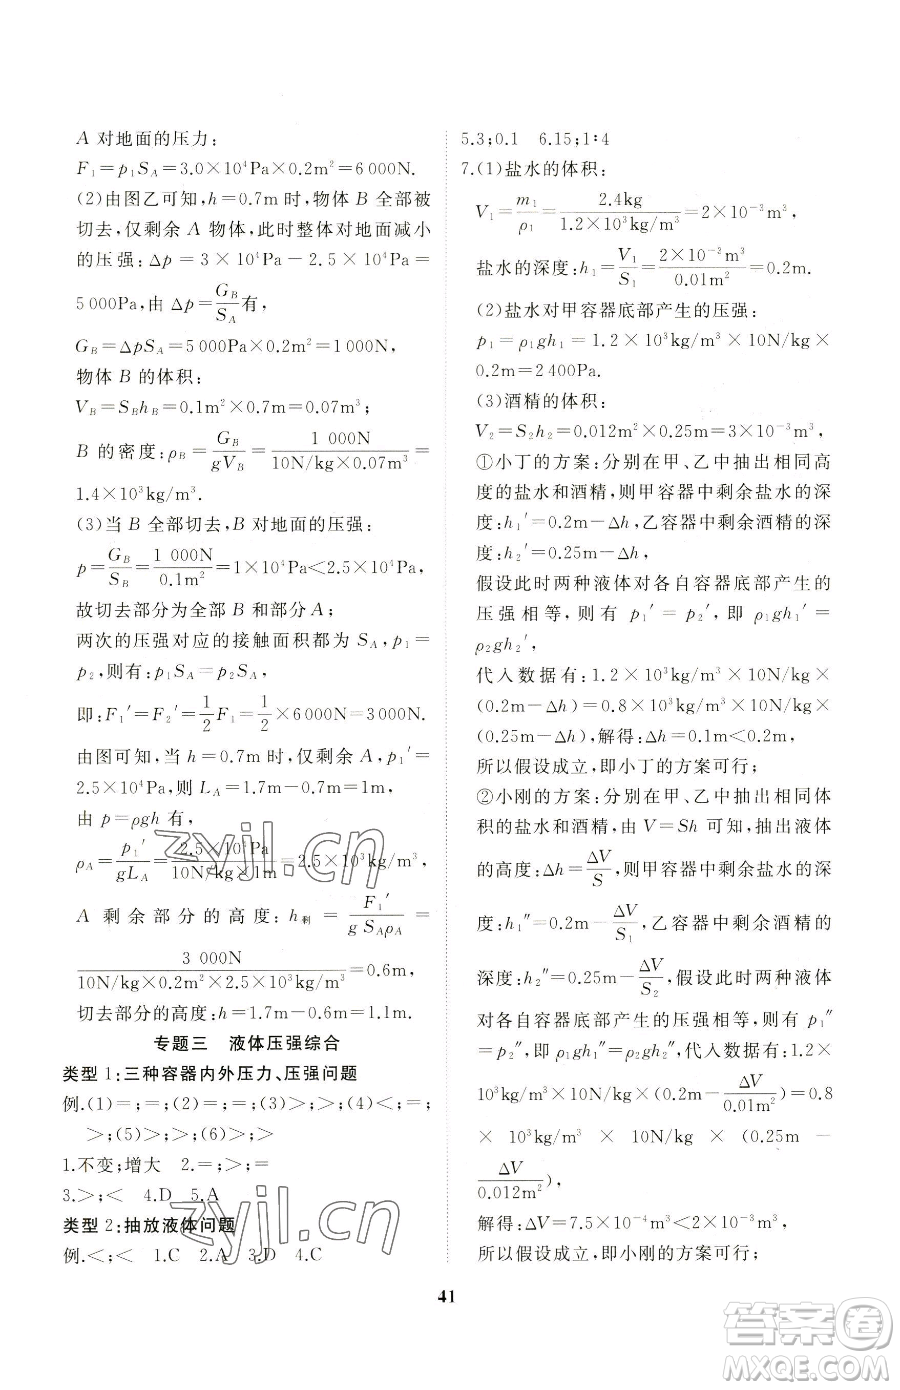 A 对地面的压力:
F₁=p₁S_A=3.0×10⁴Pa×0.2m²=6 000N.
(2)由图乙可知,h=0.7m时,物体 B 全部被
切去,仅剩余 A 物体,此时整体对地面减小
的压强:Δp=3×10⁴Pa-2.5×10⁴Pa=
5 000Pa,由 Δp=G_B/S_A有,
G_B=ΔpS_A=5 000Pa×0.2m²=1 000N,
物体 B 的体积:
V_B=S_Bh_B=0.1m²×0.7m=0.07m³;
B 的密度:ρ_B=G_B/gV_B=1 000N/10N/kg×0.07m³=
1.4×10³kg/m³.
(3)当 B 全部切去,B 对地面的压强:
p=G_B/S_B=1 000N/0.1m²=1×10⁴Pa<2.5×10⁴Pa,
故切去部分为全部 B 和部分 A;
两次的压强对应的接触面积都为 S_A,p₁=
p₂,则有:p₁S_A=p₂S_A,
即:F₁′=F₂′=1/2F₁=1/2×6 000N=3 000N.
由图可知,当 h=0.7m时,仅剩余 A,p₁′=
2.5×10⁴Pa,则 L_A=1.7m-0.7m=1m,
由 p=ρgh 有,
ρ_A=p₁′/gL_A=2.5×10⁴Pa/10N/kg×1m=2.5×10³kg/m³,
A 剩余部分的高度:h剩=F₁′/gS_Aρ_A=
3 000N/10N/kg×0.2m²×2.5×10³kg/m³=0.6m,
切去部分的高度:h=1.7m-0.6m=1.1m.
专题三 液体压强综合
类型 1:三种容器内外压力、压强问题
例.(1)=;=;(2)=;=;(3)>;>;(4)<;=;
>;(5)>;>;(6)>;>
1.不变;增大 2.=;>;=
3.>;< 4.D 5.A
类型 2:抽放液体问题
例.<;< 1.C 2.A 3.D 4.C
5.3;0.1 6.15;1∶4
7.(1)盐水的体积:
V₁=m₁/ρ₁=2.4kg/1.2×10³kg/m³=2×10⁻³m³,
盐水的深度:h₁=V₁/S₁=2×10⁻³m³/0.01m²=0.2m.
(2)盐水对甲容器底部产生的压强:
p₁=ρ₁gh₁=1.2×10³kg/m³×10N/kg×
0.2m=2 400Pa.
(3)酒精的体积:
V₂=S₂h₂=0.012m²×0.25m=3×10⁻³m³,
①小丁的方案:分别在甲、乙中抽出相同高
度的盐水和酒精,则甲容器中剩余盐水的深
度:h₁′=0.2m-Δh,乙容器中剩余酒精的深
度:h₂′=0.25m-Δh,
假设此时两种液体对各自容器底部产生的
压强相等,则有 p₁′=p₂′,即 ρ₁gh₁′=
ρ₂gh₂′,
代入数据有:1.2×10³kg/m³×10N/kg×
(0.2m-Δh)=0.8×10³kg/m³×10N/kg×
(0.25m-Δh),解得:Δh=0.1m<0.2m,
所以假设成立,即小丁的方案可行;
②小刚的方案:分别在甲、乙中抽出相同体
积的盐水和酒精,由 V=Sh 可知,抽出液体
的高度:Δh=ΔV/S,则甲容器中剩余盐水的深
度:h₁″=0.2m-ΔV/S₁,乙容器中剩余酒精的
深度:h₂″=0.25m-ΔV/S₂,假设此时两种液体
对各自容器底部产生的压强相等,则有 p₁″
=p₂″,即 ρ₁gh₁″=ρ₂gh₂″,代入数据有:1.2×
10³kg/m³×10N/kg×(0.2m-ΔV/0.01m²)=0.8
×10³kg/m³×10N/kg×(0.25m-
ΔV/0.012m²),
解得:ΔV=7.5×10⁻⁴m³<2×10⁻³m³,
所以假设成立,即小刚的方案可行;
41
zyjl.cn
zyjl.cn
答案圈
MXQE.COM